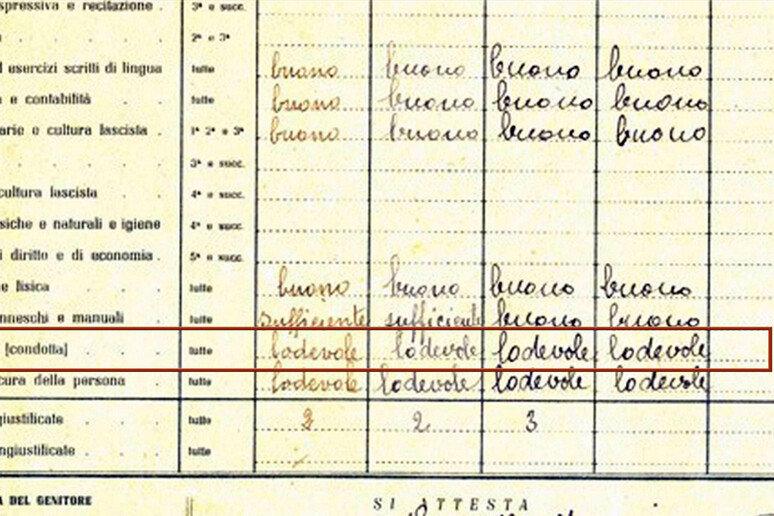 spressiva e recitazione . 3ª e succ.
. . . 2ª e 3ª
d esercizi scritti di lingua tutte buono buono buono buono
a e contabilità . . tutte buono buono buono buono
arie e cultura fascista . 1ª 2ª e 3ª buono buono buono buono
. . . . 3ª e succ.
cultura fascista . . 4ª e succ.
siche e naturali e igiene 4ª e succ.
i diritto e di economia . 5ª e succ.
e fisica . . . tutte buono buono buono buono
nneschi e manuali . tutte sufficiente sufficiente buono buono
[condotta] . . tutte lodevole lodevole lodevole lodevole
cura della persona . tutte lodevole lodevole lodevole lodevole
giustificate . . . tutte 2 2 3
ngiustificate . . . tutte
A DEL GENITORE SI ATTESTA